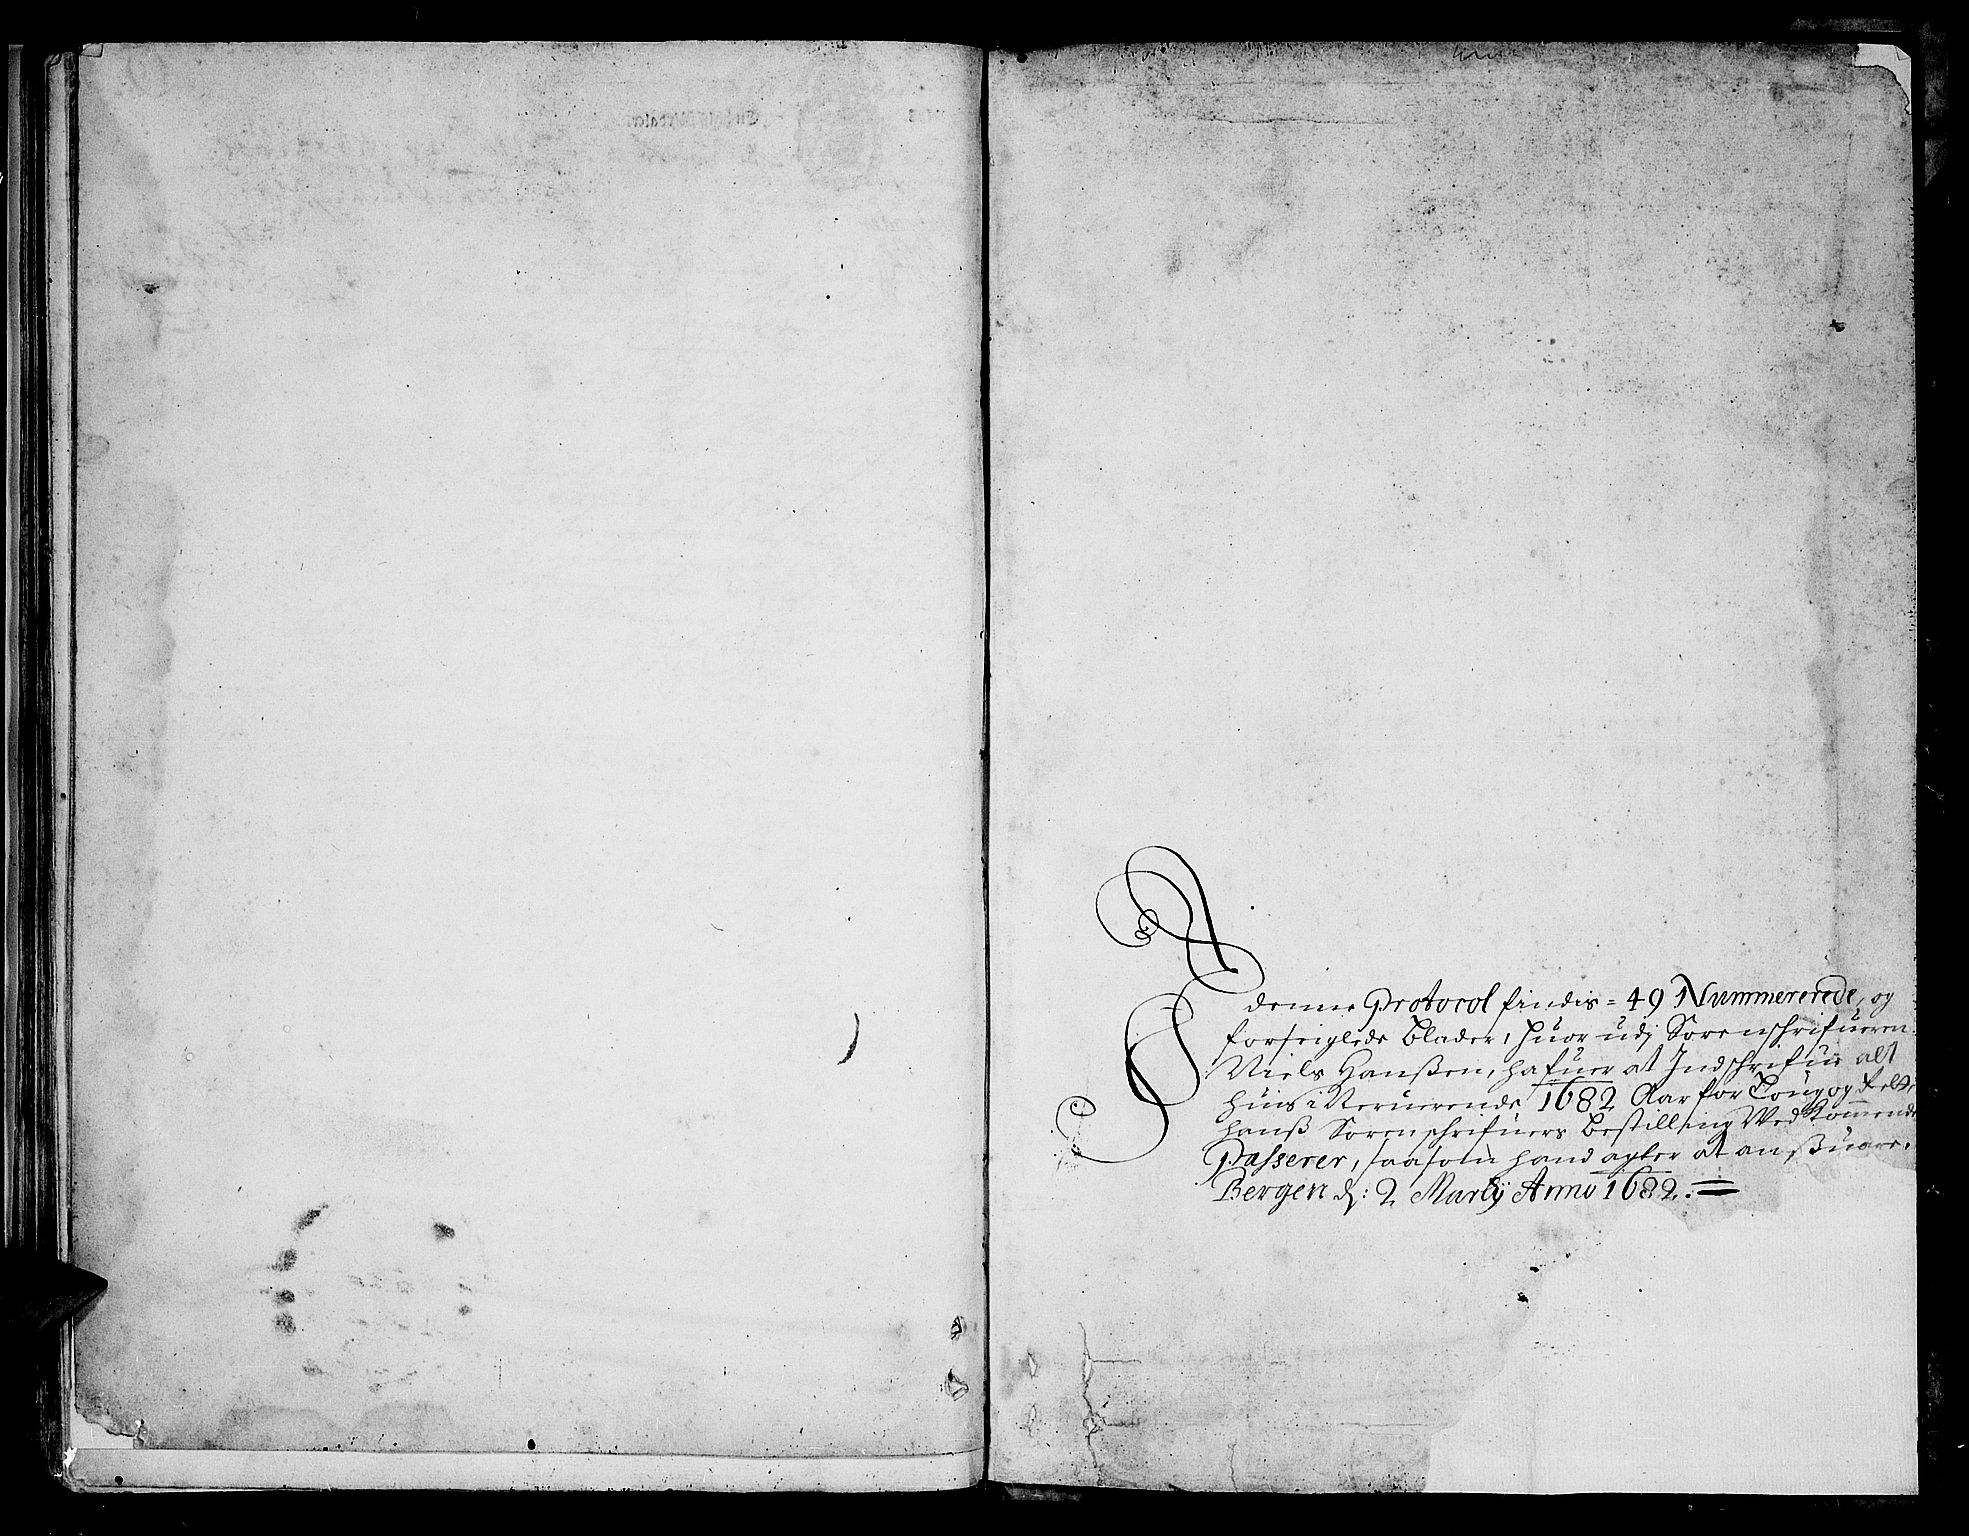 I denne Protocol findis = 49 Nummererede, og
forseiglede Blader, huor udj Sorenschrifueren
Niels Hanßen, hafuer at Indschrifue alt
huis i Neruerende 1682 Aar for Ting og Rette
hanß Sorenschrifuers Bestilling Ved Kommende
Passerer, saasom hand agter at anßuare,
Bergen d: 2 Martij Anno 1682.